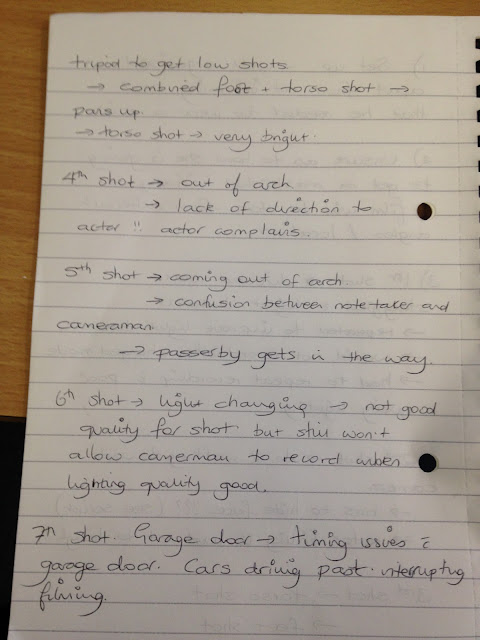 tripod to get low shots.
→ combined foot + torso shot →
pans up.
→ torso shot → very bright.
4th shot → out of arch
→ lack of direction to
actor !! actor complains.
5th shot → coming out of arch
→ confusion between note taker and
cameraman.
→ passerby gets in the way.
6th shot → light changing → not good
quality for shot but still won't
allow camerman to record when
lighting quality good.
7th shot. Garage door → timing issues c̄
garage door. Cars driving past interrupting
filming.